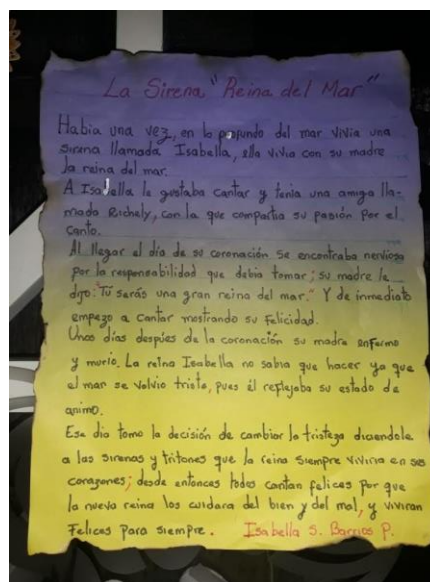 La Sirena "Reina del Mar"
Habia una vez, en lo profundo del mar vivia una
sirena llamada Isabella, ella vivia con su madre
la reina del mar.
A Isabella le gustaba cantar y tenia una amiga lla-
mada Richely, con la que compartia su pasión por el
canto.
Al llegar el día de su coronación se encontraba nerviosa
por la responsabilidad que debia tomar; su madre le
dijo: "Tú serás una gran reina del mar." Y de inmediato
empezo a cantar mostrando su felicidad.
Unos días despúes de la coronación su madre enfermo
y murio. La reina Isabella no sabia que hacer ya que
el mar se volvio triste, pues él reflejaba su estado de
animo.
Ese dia tomo la decisión de cambiar la tristeza diciendole
a las sirenas y tritones que la reina siempre viviria en sus
corazones; desde entonces todos cantan felices por que
la nueva reina los cuidara del bien y del mal, y viviran
Felices para siempre. Isabella S. Barrios P.